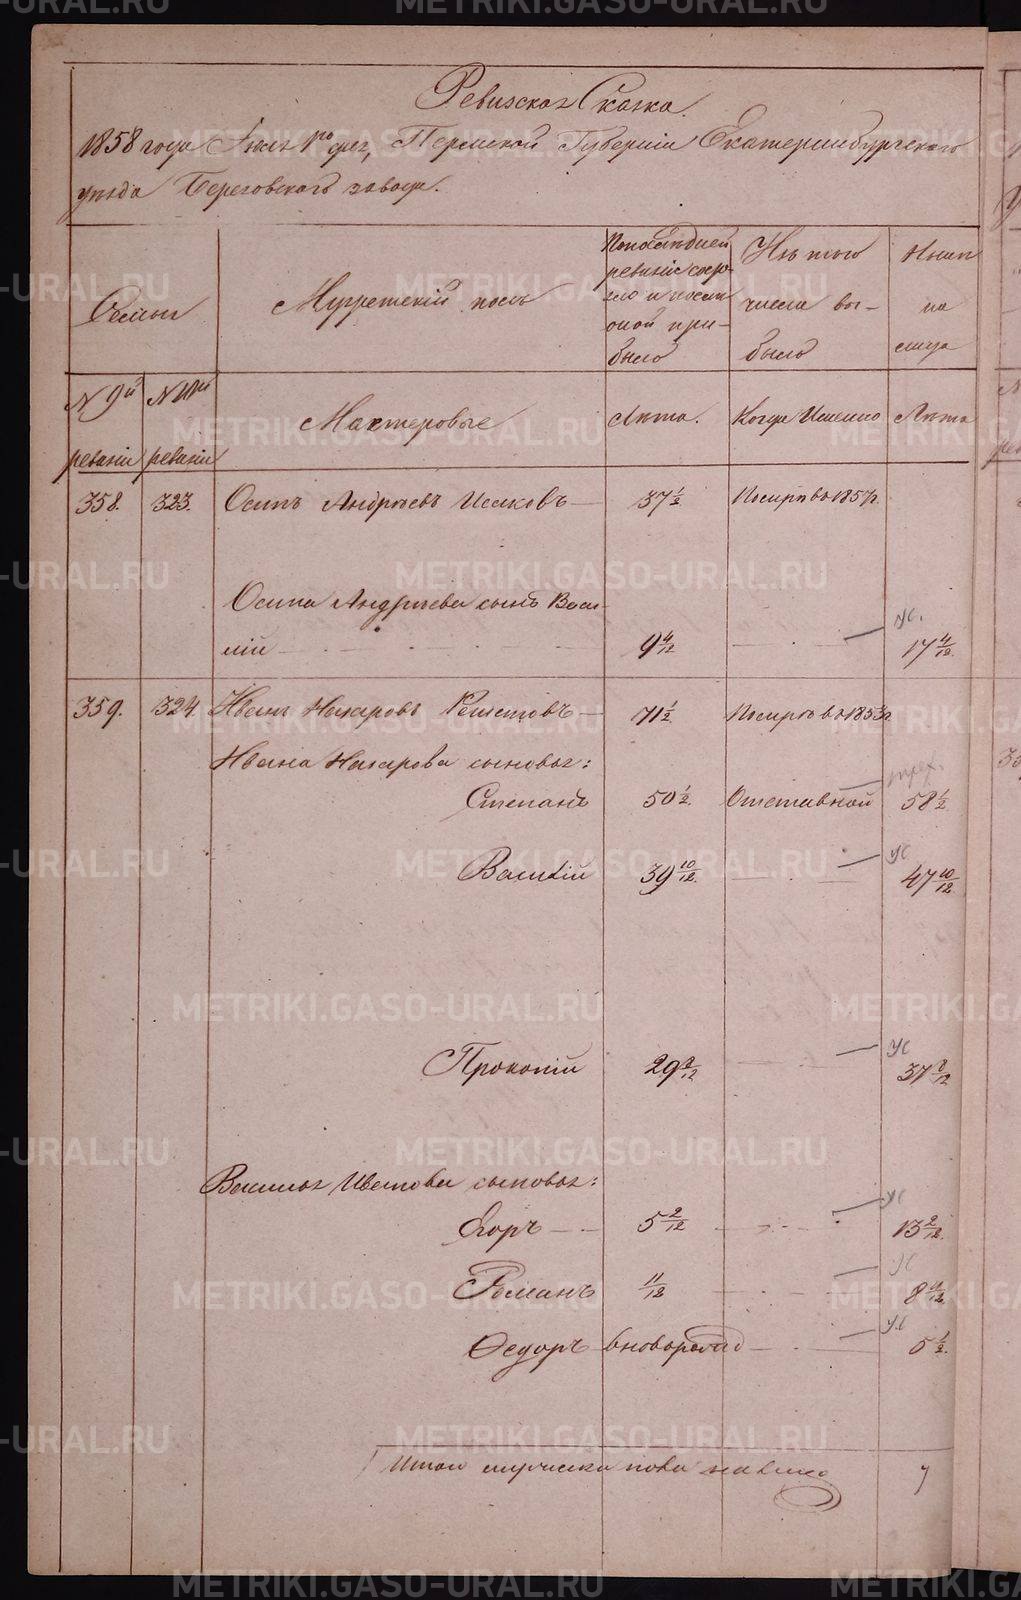 Ревизская Сказка.
1858 года Июля 1го дня, Пермской Губерніи Екатеринбургского
уѣзда Березовского завода.
Семьи
Мужескій полъ
По последней
ревизіи состо-
яло и после
оной при-
было
Изъ того
числа вы-
было
Нынѣ
на
лицо
№ 9й
ревизіи
№ 10й
ревизіи
Мастеровые
Лѣта.
Когда Именно
Лѣта
358. 323. Осипъ Андрѣевъ Исаковъ 37 1/2 Померъ въ 1857г.
Осипа Андрѣева сынъ Васи-
лій 9 4/12 ус. 17 4/12.
359. 324. Иванъ Назаровъ Решетовъ 71 1/2 Померъ въ 1853г
Ивана Назарова сыновья:
Степанъ 50 1/2. Отставной 58 1/2
Василій 39 10/12. ус 47 10/12.
Прокопій 29 8/12 ус 37 8/12
Василья Иванова сыновья:
Егоръ 5 2/12 ус 13 2/12.
Романъ 11/12 ус 8 11/12.
Федоръ вноворожд ус 5 1/2.
Итого мужеска пола на лицо 7
METRIKI.GASO-URAL.RU